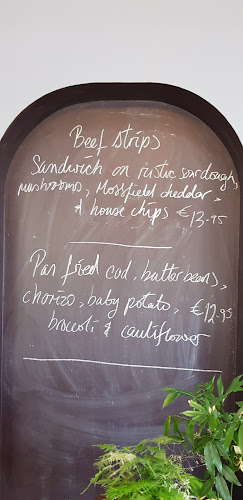 Beef strips
Sandwich on rustic sourdough,
mushrooms, Mossfield cheddar,
& house chips €13.95
Pan fried cod, butter beans,
chorizo, baby potato, €12.95
brocoli & cauliflower